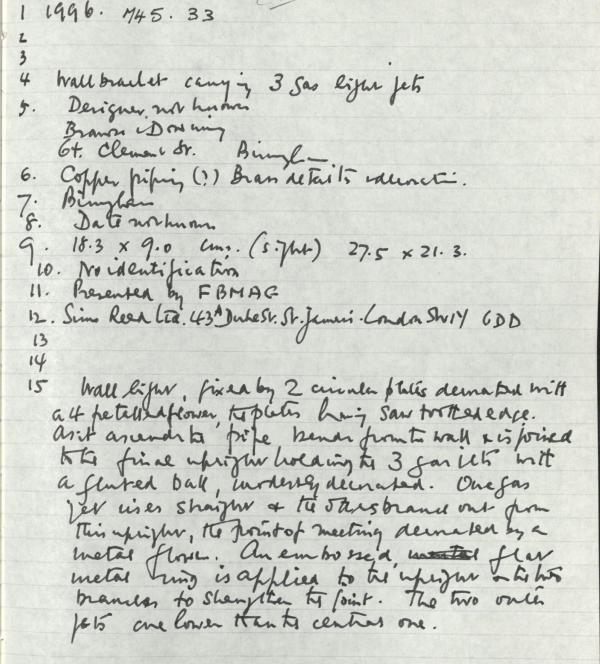 1 1996. M45. 33
2
3
4 Wall bracket carrying 3 gas light jets
5. Designer not known
& Downing
Gt. Clement St.
6. Copper piping (?) Brass details &
7.
8. Date not known
9. 18.3 x 9.0 cms. (sight) 27.5 x 21.3.
10. No identification
11. Presented by FBMAG
12. Sims Reed Ltd. 43A Duke St. St. James's. London SW1Y 6DD
13
14
15 Wall light, fixed by 2 circular plates decorated with
a 4 petalled flower, the plates having saw toothed edge.
As it ascends the pipe bends from the wall & is joined
to the final upright holding the 3 gas jets with
a fluted ball, modestly decorated. One gas
jet rises straight & the others branch out from
this upright, the point of meeting decorated by a
metal flower. An embossed, flat
metal ring is applied to the upright & the two
branches to strengthen the joint. The two outer
jets are lower than the central one.